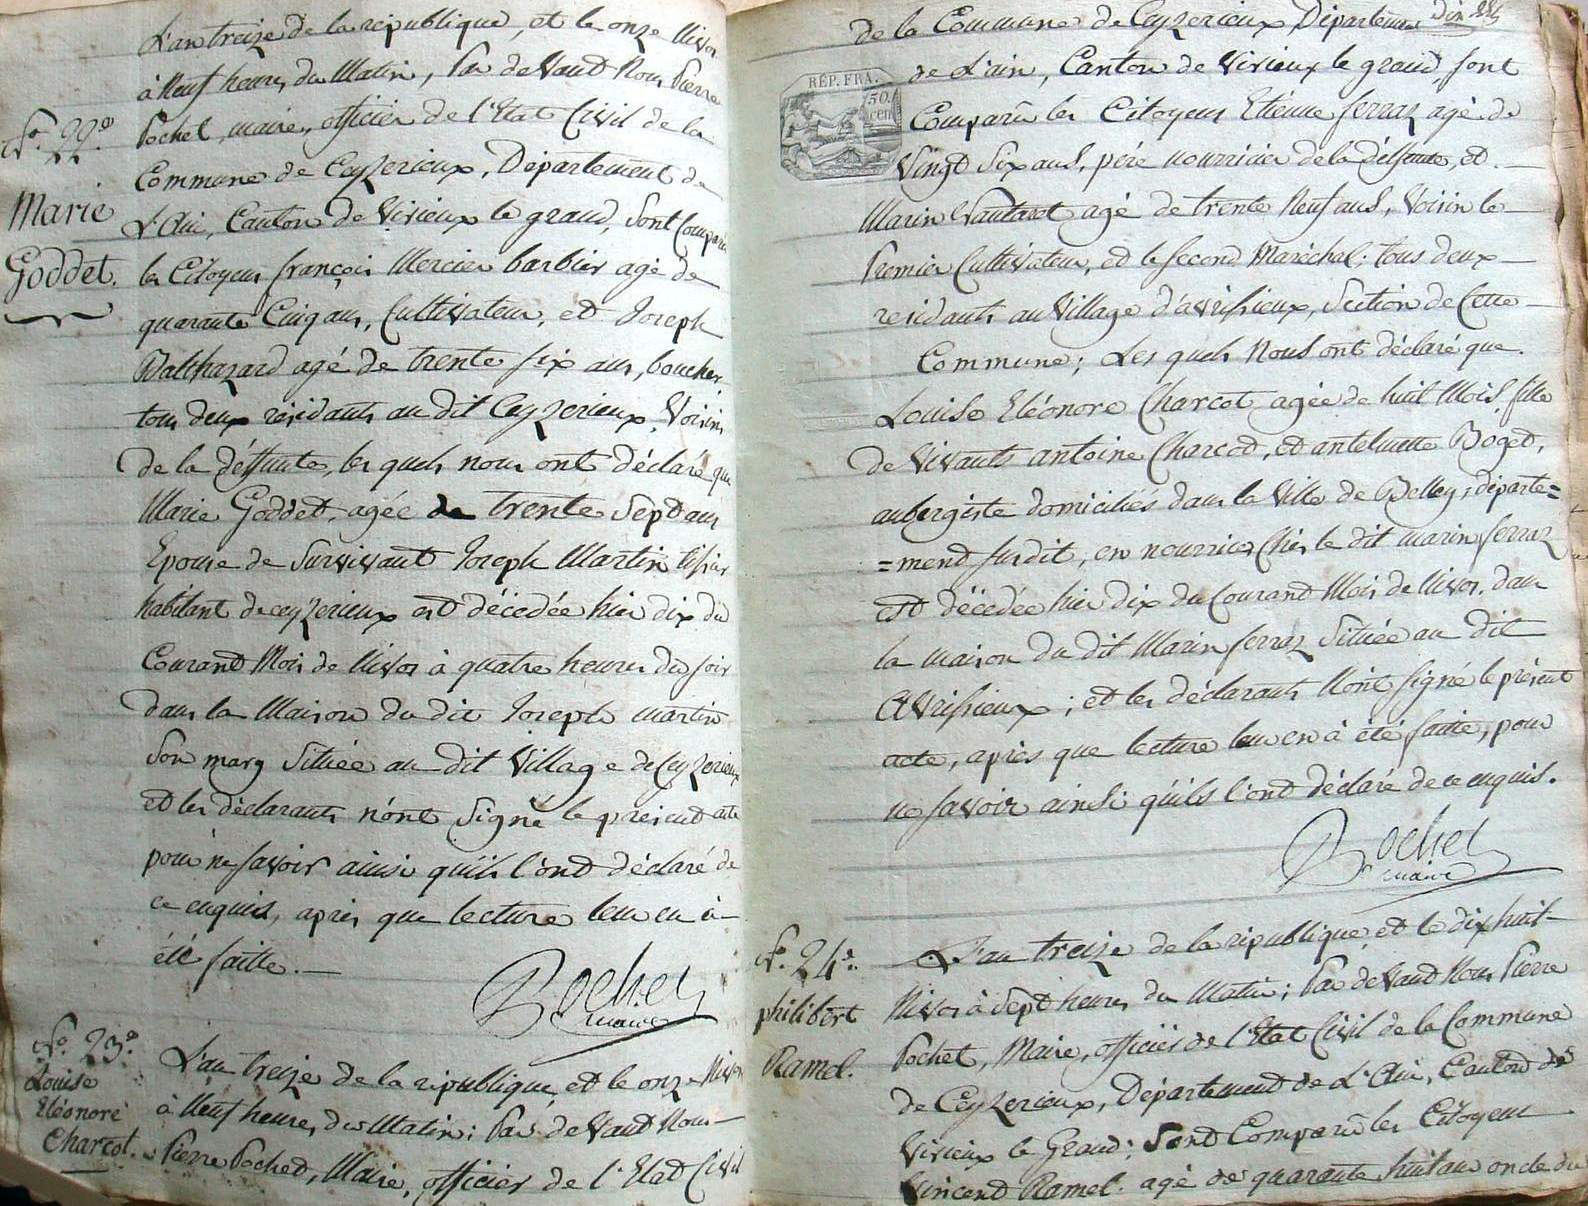 L'an treize de la république, et le onze Nivos
à Neuf heures du Matin, Par devant Nous Pierre
Pochet, maire, officier de l'Etat Civil de la
Commune de Ceyzerieux, Département de
L'Ain, Canton de Virieux le grand, sont Comparu
les Citoyens françois Mercier barbier agé de
quarante Cinq ans, Cultivateur, et Joseph
Balthazard agé de trente six ans, boucher,
tous deux résidants au dit Ceyzerieux, Voisins
de la déffunte, les quels nous ont déclaré que
Marie Goddet, agée de trente Sept ans
Epouse de Survivant Joseph Martin tissier
habitant de ceyzerieux est décédée hier dix du
Courant Mois de Nivos à quatre heures du soir
dans la Maison du dit Joseph martin
Son mary Située au dit Village de Ceyzerieux
et les déclarants n'ont Signé le présent acte
pour ne savoir ainsi qu'ils l'ont déclaré de
ce enquis, après que lecture leur en à
été faitte.
Pochet
maire
No. 22e
Marie
Goddet.
No. 23e
Louise
Eléonore
Charcot.
L'an treize de la république et le onze Nivos
à Neuf heures du Matin; Par devant Nous
Pierre Pochet, Maire, officier de l'Etat Civil
de la Commune de Ceyzerieux, Département
REP. FRA.
50.
cen
de L'ain, Canton de Virieux le grand, sont
Comparu les Citoyens Etienne ferraz agé de
Vingt Six ans, père nourricier de la déffunte, et
Marin Vautaret agé de trente Neuf ans, Voisin le
Premier Cultivateur, et le second Maréchal; tous deux
residants au Village d'avrissieux, Section de Cette
Commune; Les quels Nous ont déclaré que
Louise Eléonore Charcot agée de huit Mois, fille
de Vivants antoine Charcot, et antelmette Boget,
aubergiste domiciliés dans la Ville de Belley, départe=
=ment susdit, en nourrice chés le dit marin ferraz
est décédée hier dix du Courant Mois de Nivos. dans
la maison du dit Marin ferraz Située au dit
Avrissieux; et les déclarants N'ont signé le présent
acte, après que lecture leur en à été faitte, pour
ne savoir ainsi qu'ils l'ont déclaré de ce enquis.
Pochet
maire
No. 24e
philibert
Ramel.
L'an treize de la république et le dix huit
Nivos à Sept heures du Matin; Par devant Nous Pierre
Pochet, Maire, officier de l'Etat Civil de la Commune
de Ceyzerieux, Département de L'Ain, Canton de
Virieux le Grand; Sont Comparu les Citoyens
Vincent Ramel agé de quarante huit ans oncle du